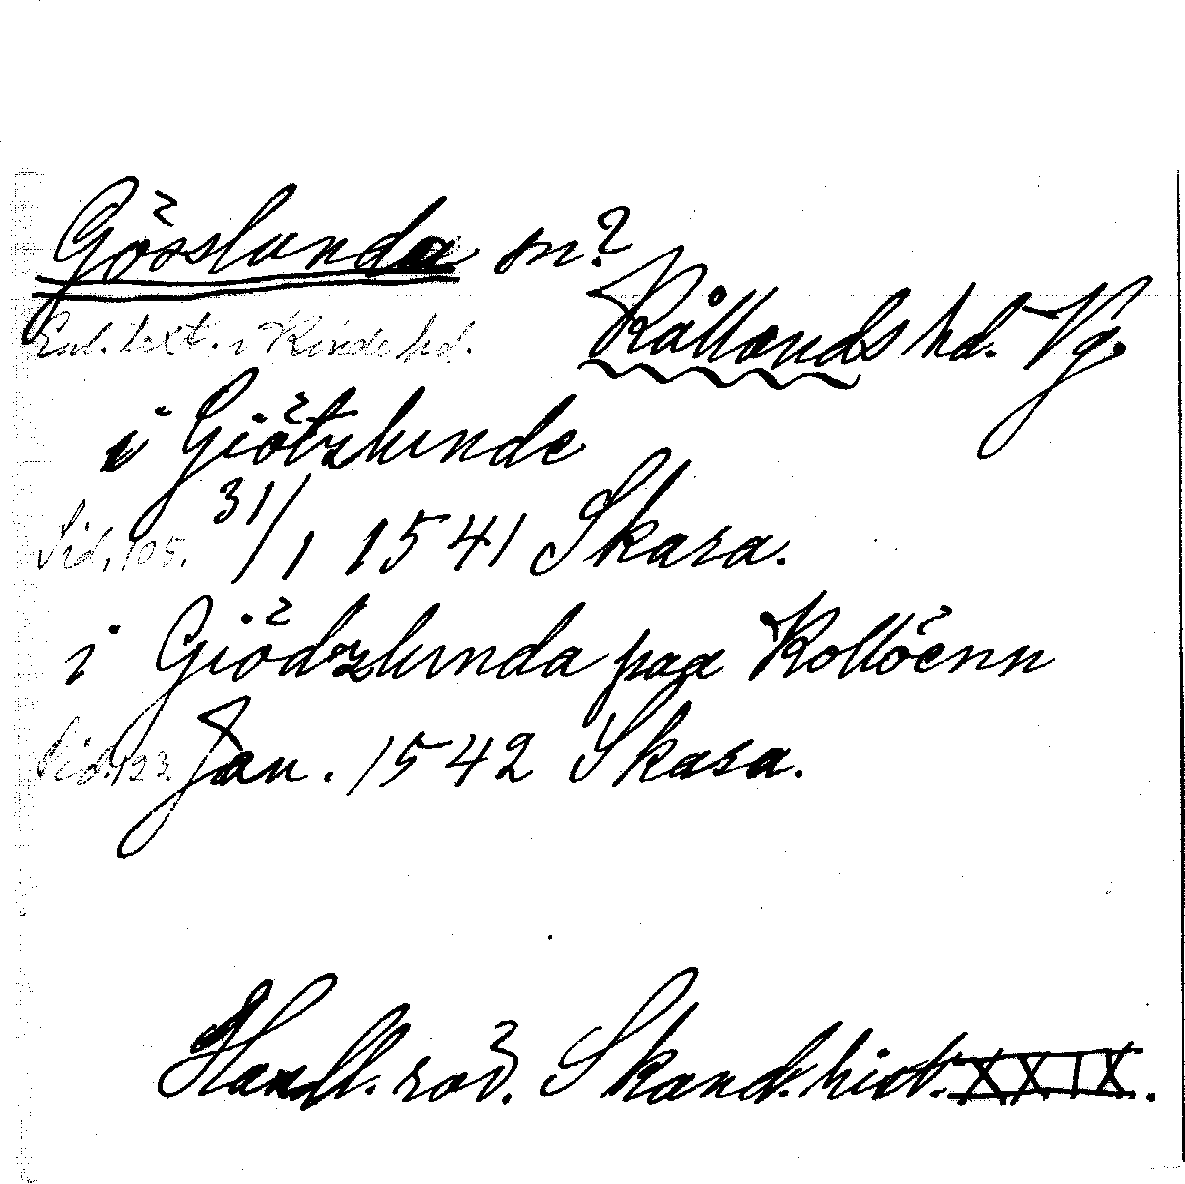 Gösslunda sn?
Kållands hd. Vg.
Enl. text. i Kinde hd.
i Giötzlunde
Sid. 105. 31/1 1541 Skara.
i Giödzlunda paa Kollöenn
Sid. 123. Jan. 1542 Skara.
Handl. rör. Skand. hist. XXIX.